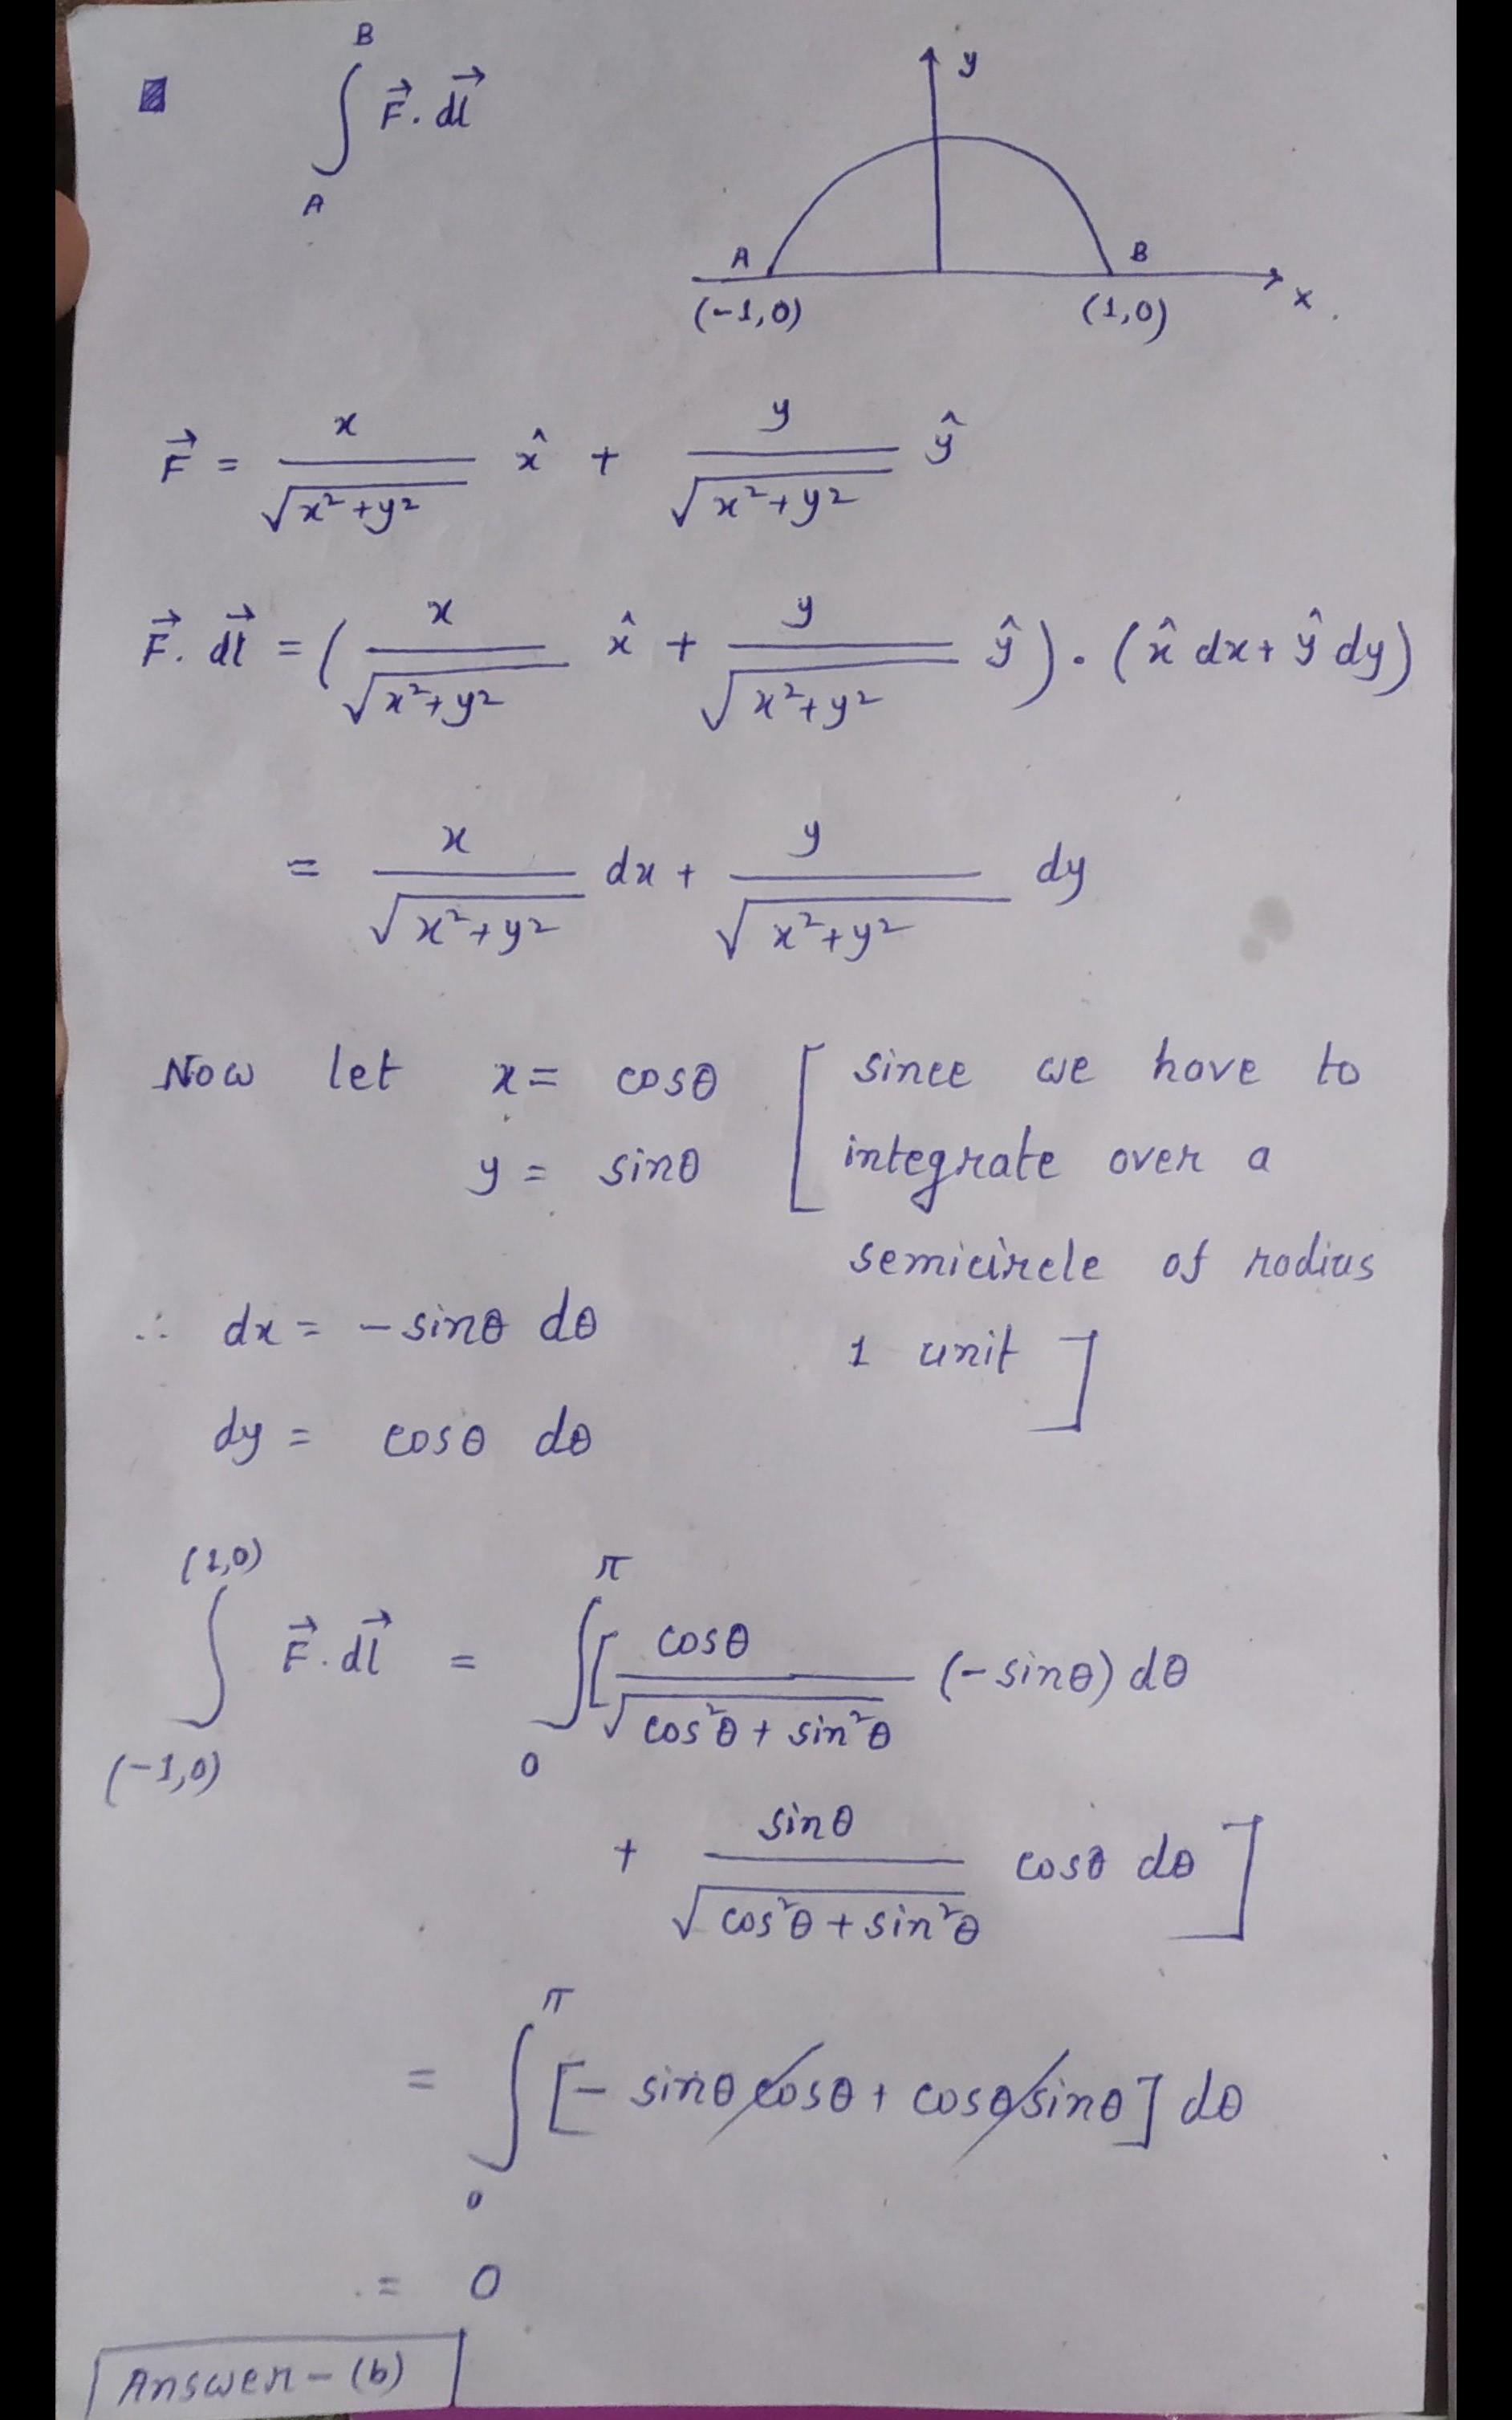 ∫_A^B F⃗ . dl⃗
y
A
B
(-1,0)
(1,0)
x
F⃗ = x/√(x²+y²) x̂ + y/√(x²+y²) ŷ
F⃗ . dl⃗ = (x/√(x²+y²) x̂ + y/√(x²+y²) ŷ) . (x̂ dx + ŷ dy)
= x/√(x²+y²) dx + y/√(x²+y²) dy
Now let x = cosθ [ since we have to
y = sinθ integrate over a
semicircle of radius
∴ dx = - sinθ dθ 1 unit ]
dy = cosθ dθ
∫_(-1,0)^(1,0) F⃗ . dl⃗ = ∫_0^π [ cosθ/√(cos²θ + sin²θ) (- sinθ) dθ
+ sinθ/√(cos²θ + sin²θ) cosθ dθ ]
= ∫_0^π [- sinθ cosθ + cosθ sinθ] dθ
= 0
Answer - (b)